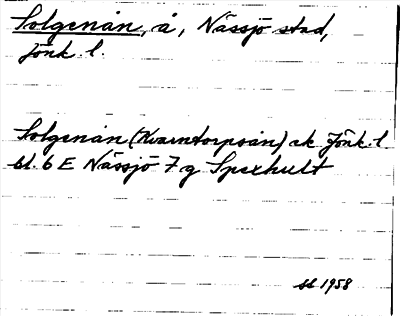 Solgenån, å, Nässjö stad,
Jönk. l.
Solgenån (Kvarntorpsån) ek Jönk. l
bl. 6 E Nässjö 7 g Spexhult
bl 1958